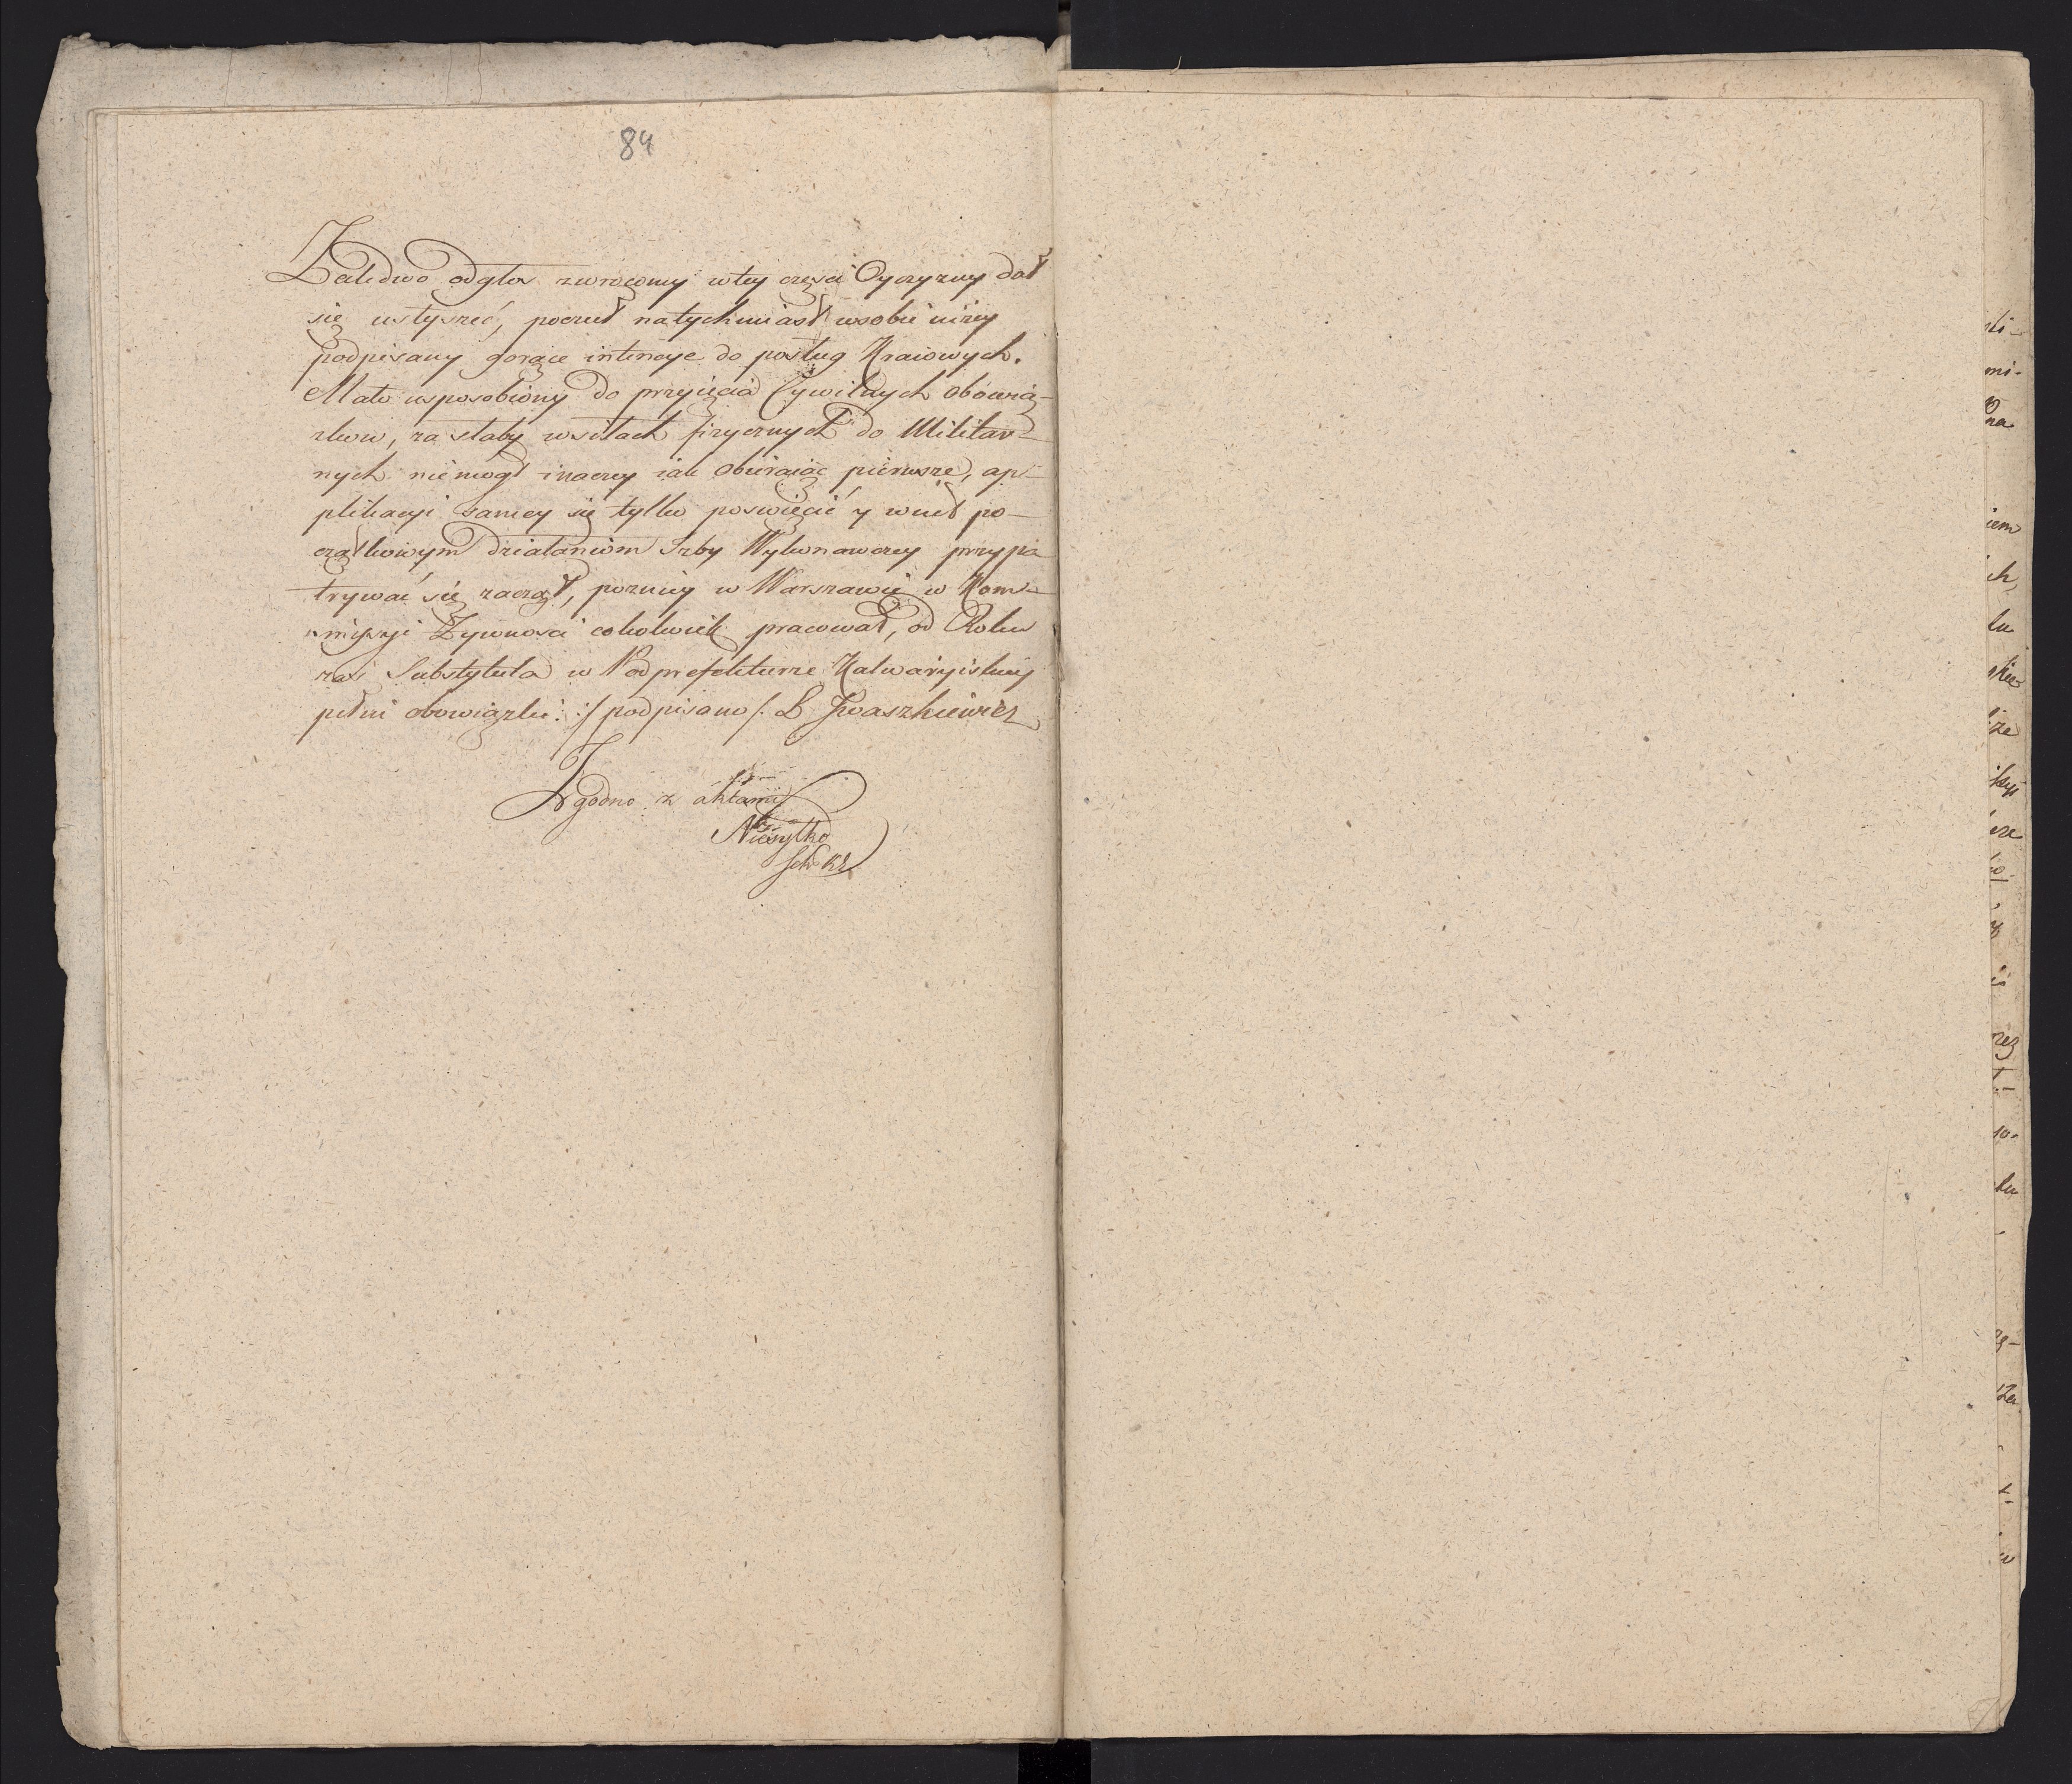 84
Zaledwo odgłos zwróconey w tey części Oyczyzny dał
się usłyszeć, poczuł natychmiast w sobie niżey
podpisany gorące intencye do posług Kraiowych.
Mało usposobiony do przyięcia Cywilnych Obowią-
zków, za słaby w siłach fizycznych do Militar-
nych nie mogł inaczey iak Obieraiąc pierwsze, ap-
plikacyi samey się tylko poswięcić y wnet po-
czątkowym działaniom Izby Wykonawczey przypa
trywać się zaczął, pozniey w Warszawie w Kom-
missyi Żywnosci cokolwiek pracował, od Roku
zaś Substytuta w Podprefekturze Kalwaryiskiey
pełni obowiązki: :/podpisano/: Iwaszkiewicz
Zgodno z aktami
Niesytko